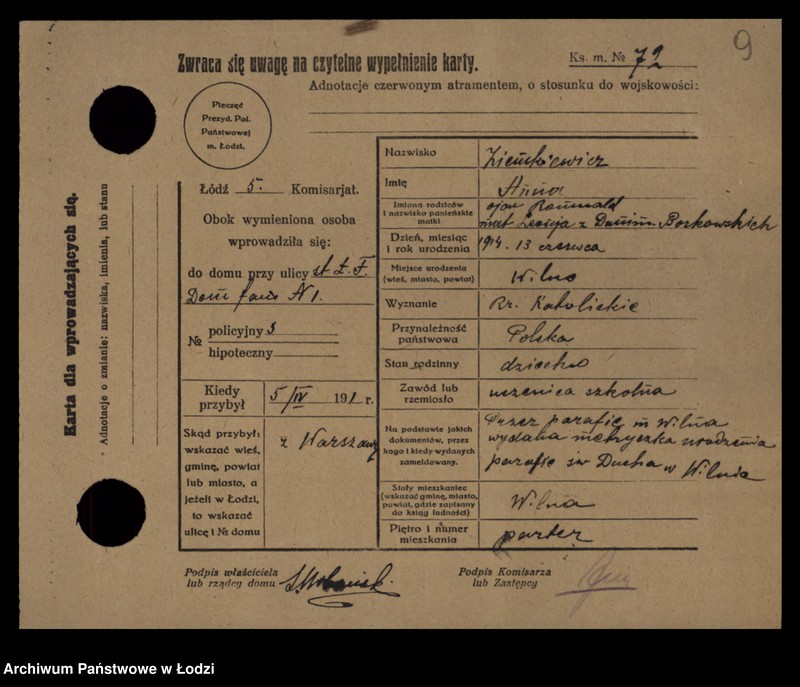 9
Zwraca się uwagę na czytelne wypełnienie karty.
Ks. m. № 72
Adnotacje czerwonym atramentem, o stosunku do wojskowości:
Pieczęć
Prezyd. Pol.
Państwowej
m. Łodzi.
Karta dla wprowadzających się.
Adnotacje o zmianie: nazwiska, imienia, lub stanu
Łódź 5. Komisarjat.
Obok wymieniona osoba
wprowadziła się:
do domu przy ulicy st Ł. F.
Dom № 1.
№ policyjny 3
hipoteczny
Kiedy przybył 5/IV 191 r.
Skąd przybył:
wskazać wieś,
gminę, powiat
lub miasto, a
jeżeli w Łodzi,
to wskazać
ulicę i № domu
z Warszawy
Nazwisko Ziemkiewicz
Imię Anna
Imiona rodziców
i nazwisko panieńskie
matki
ojca Romuald
mat z Borkowskich
Dzień, miesiąc
i rok urodzenia
1914. 13 czerwca
Miejsce urodzenia
(wieś, miasto, powiat)
Wilno
Wyznanie Rz. Katolickie
Przynależność
państwowa
Polska
Stan rodzinny dziecko
Zawód lub
rzemiosło
uczenica szkolna
Na podstawie jakich
dokumentów, przez
kogo i kiedy wydanych
zameldowany.
Przez parafię m Wilna
wydana metryczka urodzenia
parafię św Ducha w Wilnie
Stały mieszkaniec
(wskazać gminę, miasto,
powiat, gdzie zapisany
do ksiąg ludności)
Wilna
Piętro i numer
mieszkania
parter
Podpis właściciela
lub rządcy domu
Podpis Komisarza
lub Zastępcy
Archiwum Państwowe w Łodzi